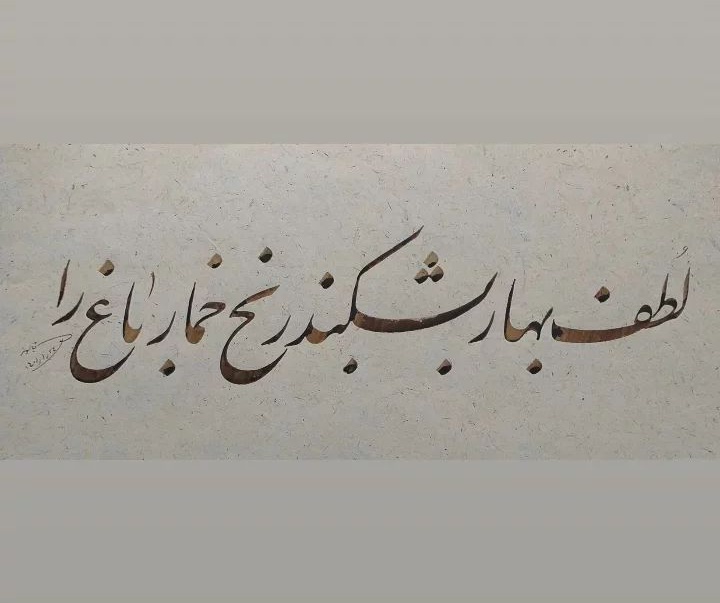 لُطف بهار بشکند رنج خمار باغ را